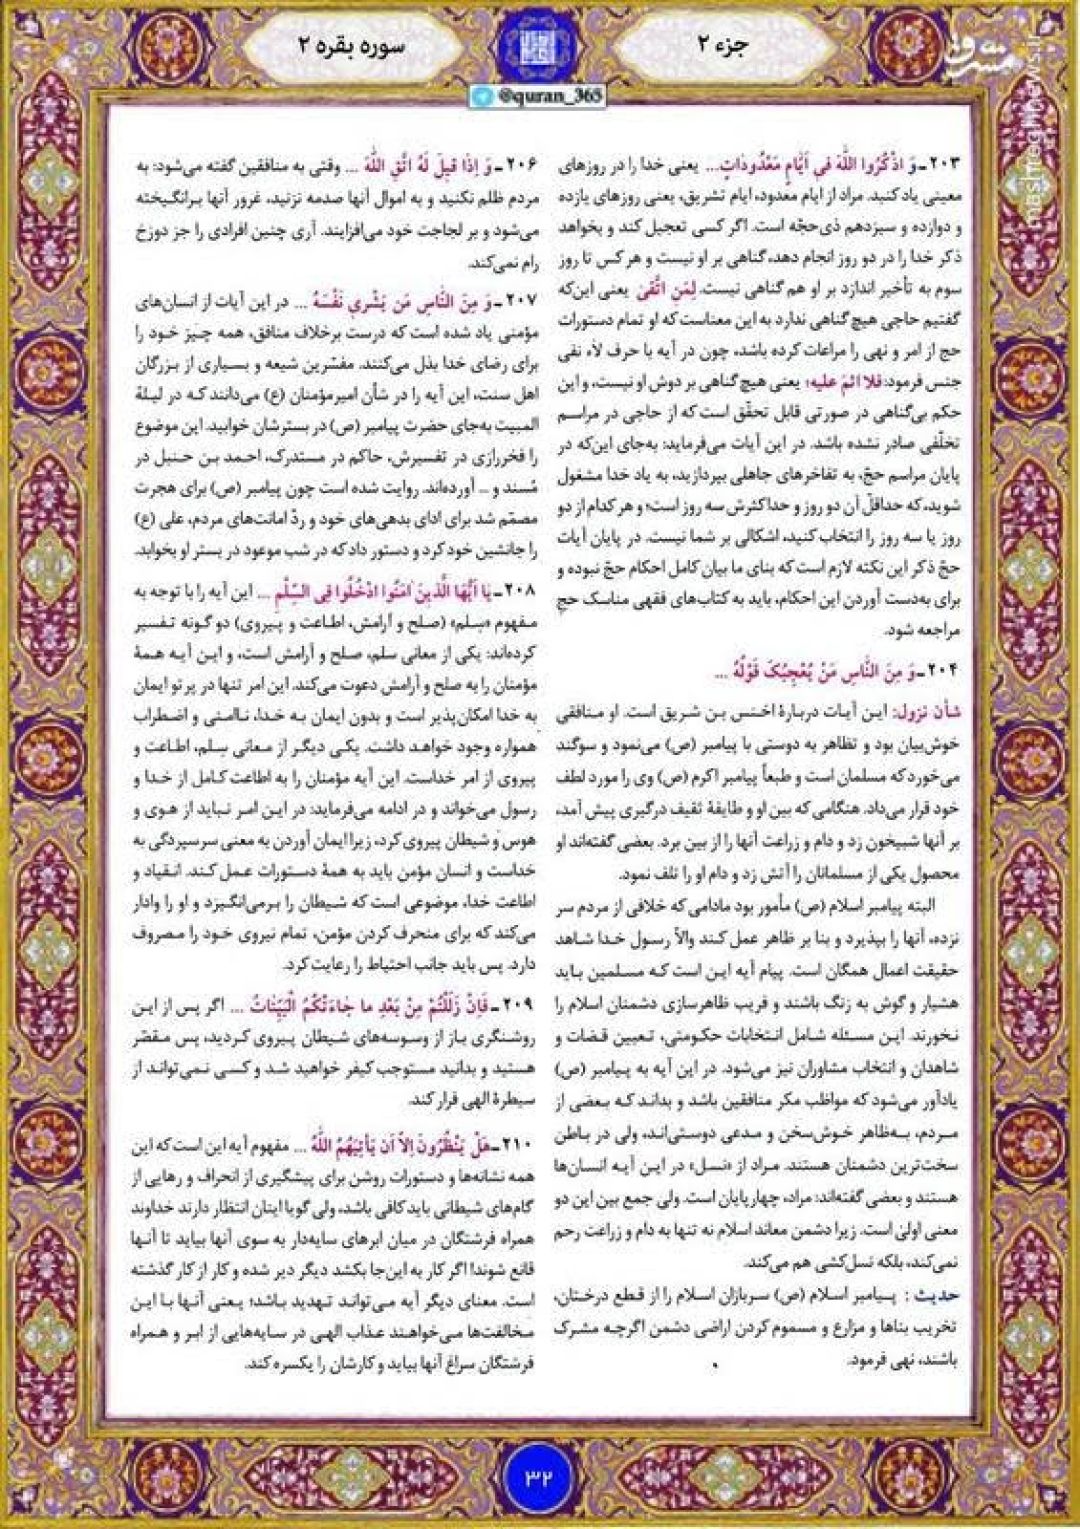 جزء ۲
سوره بقره ۲
@quran_365
۲۰۳ـ وَ اذْكُرُوا اللّهَ في اَيّامٍ مَعْدُوداتٍ... یعنی خدا را در روزهای
معینی یاد کنید. مراد از ایام معدود، ایام تشریق، یعنی روزهای یازده
و دوازده و سیزدهم ذی‌حجّه است. اگر کسی تعجیل کند و بخواهد
ذکر خدا را در دو روز انجام دهد، گناهی بر او نیست و هر کس تا روز
سوم به تأخیر اندازد بر او هم گناهی نیست. لِمَنِ اتَّقىٰ یعنی این‌که
گفتیم حاجی هیچ گناهی ندارد به این معناست که او تمام دستورات
حج از امر و نهی را مراعات کرده باشد، چون در آیه با حرف لاء نفی
جنس فرمود: فلا اثمَ علیه؛ یعنی هیچ گناهی بر دوش او نیست، و این
حکم بی‌گناهی در صورتی قابل تحقّق است که از حاجی در مراسم
تخلّفی صادر نشده باشد. در این آیات می‌فرماید: به‌جای این‌که در
پایان مراسم حجّ، به تفاخرهای جاهلی بپردازید، به یاد خدا مشغول
شوید، که حداقلّ آن دو روز و حداکثرش سه روز است؛ و هر کدام از دو
روز یا سه روز را انتخاب کنید، اشکالی بر شما نیست. در پایان آیات
حجّ ذکر این نکته لازم است که بنای ما بیان کامل احکام حجّ نبوده و
برای به‌دست آوردن این احکام، باید به کتاب‌های فقهی مناسک حج
مراجعه شود.
۲۰۴ـ وَ مِنَ النّاسِ مَنْ يُعْجِبُكَ قَوْلُهُ ...
شأن نزول: این آیات دربارهٔ اخنس بن شریق است. او منافقی
خوش‌بیان بود و تظاهر به دوستی با پیامبر (ص) می‌نمود و سوگند
می‌خورد که مسلمان است و طبعاً پیامبر اکرم (ص) وی را مورد لطف
خود قرار می‌داد. هنگامی که بین او و طایفهٔ ثقیف درگیری پیش آمد،
بر آنها شبیخون زد و دام و زراعت آنها را از بین برد. بعضی گفته‌اند او
محصول یکی از مسلمانان را آتش زد و دام او را تلف نمود.
البته پیامبر اسلام (ص) مأمور بود مادامی که خلافی از مردم سر
نزده، آنها را بپذیرد و بنا بر ظاهر عمل کند والاّ رسول خدا شاهد
حقیقت اعمال همگان است. پیام آیه این است که مسلمین باید
هشیار و گوش به زنگ باشند و فریب ظاهرسازی دشمنان اسلام را
نخورند. این مسئله شامل انتخابات حکومتی، تعیین قضات و
شاهدان و انتخاب مشاوران نیز می‌شود. در این آیه به پیامبر (ص)
یادآور می‌شود که مواظب مکر منافقین باشد و بداند که بعضی از
مردم، به‌ظاهر خوش‌سخن و مدعی دوستی‌اند، ولی در باطن
سخت‌ترین دشمنان هستند. مراد از «نسل» در این آیه انسان‌ها
هستند و بعضی گفته‌اند: مراد، چهارپایان است. ولی جمع بین این دو
معنی اولیٰ است. زیرا دشمن معاند اسلام نه تنها به دام و زراعت رحم
نمی‌کند، بلکه نسل‌کشی هم می‌کند.
حدیث : پیامبر اسلام (ص) سربازان اسلام را از قطع درختان،
تخریب بناها و مزارع و مسموم کردن اراضی دشمن اگرچه مشرک
باشند، نهی فرمود.
۲۰۶ـ وَ اِذا قيلَ لَهُ اتَّقِ اللّهَ ... وقتی به منافقین گفته می‌شود: به
مردم ظلم نکنید و به اموال آنها صدمه نزنید، غرور آنها برانگیخته
می‌شود و بر لجاجت خود می‌افزایند. آری چنین افرادی را جز دوزخ
رام نمی‌کند.
۲۰۷ـ وَ مِنَ النّاسِ مَن يَشْري نَفْسَهُ ... در این آیات از انسان‌های
مؤمنی یاد شده است که درست برخلاف منافق، همه چیز خود را
برای رضای خدا بذل می‌کنند. مفسّرین شیعه و بسیاری از بزرگان
اهل سنت، این آیه را در شأن امیرمؤمنان (ع) می‌دانند که در لیلة
المبیت به‌جای حضرت پیامبر (ص) در بسترشان خوابید. این موضوع
را فخررازی در تفسیرش، حاکم در مستدرک، احمد بن حنبل در
مُسند و ... آورده‌اند. روایت شده است چون پیامبر (ص) برای هجرت
مصمّم شد برای ادای بدهی‌های خود و ردّ امانت‌های مردم، علی (ع)
را جانشین خود کرد و دستور داد که در شب موعود در بستر او بخوابد.
۲۰۸ـ يا اَيُّهَا الَّذينَ ءامَنُوا ادْخُلُوا فِى السِّلْمِ ... این آیه را با توجه به
مفهوم «سِلم» (صلح و آرامش، اطاعت و پیروی) دو گونه تفسیر
کرده‌اند: یکی از معانی سلم، صلح و آرامش است، و این آیه همهٔ
مؤمنان را به صلح و آرامش دعوت می‌کند. این امر تنها در پرتو ایمان
به خدا امکان‌پذیر است و بدون ایمان به خدا، ناامنی و اضطراب
همواره وجود خواهد داشت. یکی دیگر از معانی سِلم، اطاعت و
پیروی از امر خداست. این آیه مؤمنان را به اطاعت کامل از خدا و
رسول می‌خواند و در ادامه می‌فرماید: در این امر نباید از هوی و
هوس و شیطان پیروی کرد، زیرا ایمان آوردن به معنی سرسپردگی به
خداست و انسان مؤمن باید به همهٔ دستورات عمل کند. انقیاد و
اطاعت خدا، موضوعی است که شیطان را برمی‌انگیزد و او را وادار
می‌کند که برای منحرف کردن مؤمن، تمام نیروی خود را مصروف
دارد. پس باید جانب احتیاط را رعایت کرد.
۲۰۹ـ فَاِنْ زَلَلْتُمْ مِنْ بَعْدِ ما جاءَتْكُمُ الْبَيِّناتُ ... اگر پس از این
روشنگری باز از وسوسه‌های شیطان پیروی کردید، پس مقصّر
هستید و بدانید مستوجب کیفر خواهید شد و کسی نمی‌تواند از
سیطرهٔ الهی فرار کند.
۲۱۰ـ هَلْ يَنْظُرُونَ اِلاّ اَن يَأتِيَهُمُ اللّهُ ... مفهوم آیه این است که این
همه نشانه‌ها و دستورات روشن برای پیشگیری از انحراف و رهایی از
گام‌های شیطانی باید کافی باشد، ولی گویا اینان انتظار دارند خداوند
همراه فرشتگان در میان ابرهای سایه‌دار به سوی آنها بیاید تا آنها
قانع شوند! اگر کار به این‌جا بکشد دیگر دیر شده و کار از کار گذشته
است. معنای دیگر آیه می‌تواند تهدید باشد؛ یعنی آنها با این
مخالفت‌ها می‌خواهند عذاب الهی در سایه‌هایی از ابر و همراه
فرشتگان سراغ آنها بیاید و کارشان را یکسره کند.
۳۲
مشرق
mashreghnews.ir